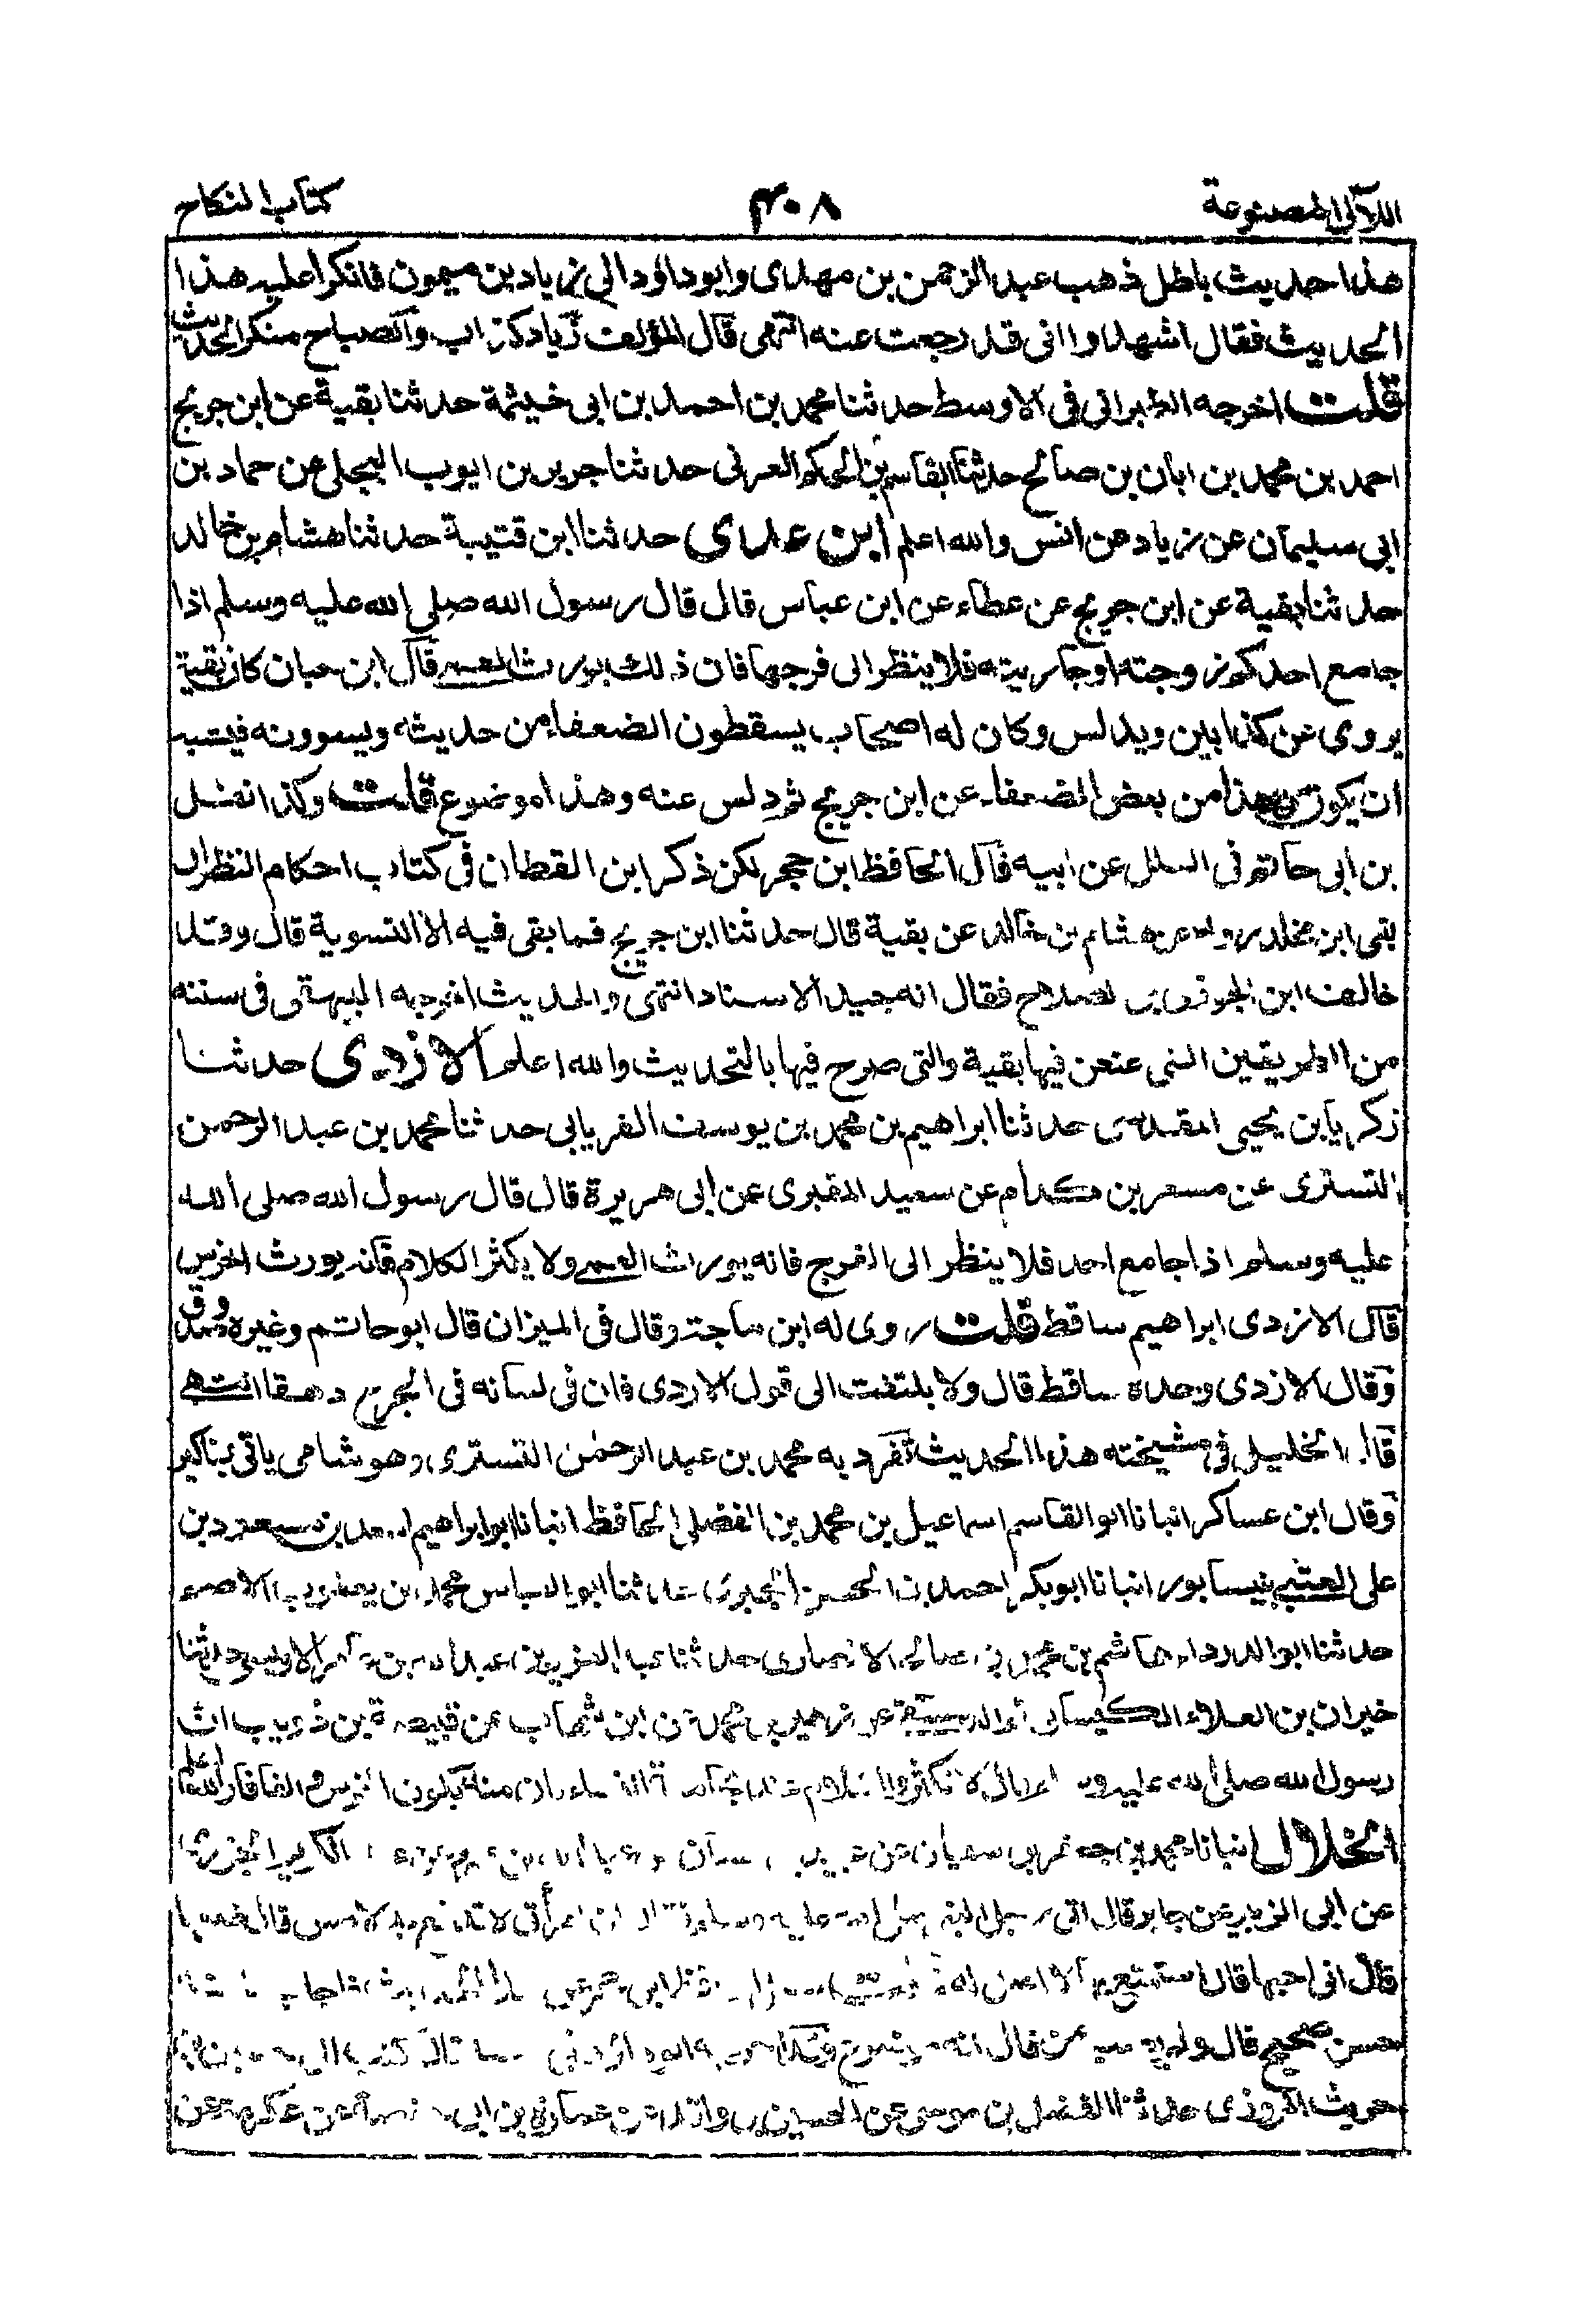 اللآلی المصنوعة
٣٠٨
كتاب النكاح
هذا حديث باطل ذهب عبد الرحمن بن مهدى وابوداؤد الى زياد بن ميمون فانكرا عليه هذا
الحديث فقال اشهدوا انى قد رجعت عنه انتهى قال المؤلف زياد كذاب والصباح منكر الحديث
قلت اخرجه الطبرانى فى الاوسط حدثنا محمد بن احمد بن ابى خيثمة حدثنا بقية عن ابن جريج
احمد بن محمد بن ابان بن صالح حدثنا القاسم بن الحكم العرنى حدثنا جرير بن ايوب البجلى عن حماد بن
ابى سليمان عن زياد عن انس والله اعلم ابن عدى حدثنا ابن قتيبة حدثنا هشام بن خالد
حدثنا بقية عن ابن جريج عن عطاء عن ابن عباس قال قال رسول الله صلى الله عليه وسلم اذا
جامع احدكم زوجته او جاريته فلا ينظر الى فرجها فان ذلك يورث العمى قال ابن حبان كان بقية
يروى عن كذابين ويدلس وكان له اصحاب يسقطون الضعفاء من حديثه ويسوونه فيشبه
ان يكون هذا من بعض الضعفاء عن ابن جريج ثم دلس عنه وهذا موضوع قلت وكذا نقل
بن ابى حاتم فى العلل عن ابيه قال الحافظ ابن حجر لكن ذكر ابن القطان فى كتاب احكام النظر ان
بقى ابن مخلد رواه عن هشام بن خالد عن بقية قال حدثنا ابن جريج فما بقى فيه الا التسوية قال وقد
خالف ابن الجوزى ابن الصلاح فقال انه جيد الاسناد انتهى والحديث اخرجه البيهقى فى سننه
من الطريقين التى عنعن فيها بقية والتى صرح فيها بالتحديث والله اعلم الازدى حدثنا
زكريا بن يحيى المقدسى حدثنا ابراهيم بن محمد بن يوسف الفريابى حدثنا محمد بن عبد الرحمن
التسترى عن مسعر بن كدام عن سعيد المقبرى عن ابى هريرة قال قال رسول الله صلى الله
عليه وسلم اذا جامع احد فلا ينظر الى الفرج فانه يورث العمى ولا يكثر الكلام فانه يورث الخرس
قال الازدى ابراهيم ساقط قلت روى له ابن ماجة وقال فى الميزان قال ابو حاتم وغيره صدوق
وقال الازدى وحده ساقط قال ولا يلتفت الى قول الازدى فان فى لسانه فى الجرح رهقا انتهى
قال الخليلى فى مشيخته هذا الحديث تفرد به محمد بن عبد الرحمٰن التسترى وهو شامى ياتى بمناكير
وقال ابن عساكر انبانا ابو القاسم اسماعيل بن محمد بن الفضل الحافظ انبانا ابو ابراهيم بن سعد بن
على العتبى بنيسابور انبانا ابو بكر احمد بن الحسن الحيرى حدثنا ابو العباس محمد بن يعقوب الاصم
حدثنا ابو الدرداء هاشم بن محمد بن صالح الانصارى حدثنا عبد العزيز بن عبد الله بن عامر الاويسى حدثنا
خيران بن العلاء الكيسانى عن زهير بن محمد عن ابن شهاب عن قبيصة بن ذويب ان
رسول الله صلى الله عليه وسلم قال لا تكثروا الكلام عند منه يكون الخرس والفافا والله اعلم
الخلال انبانا محمد بن جعفر بن سفيان عن عبد الكريم الجزرى
عن ابى الزبير عن جابر قال اتى رجل النبى صلى الله عليه وسلم فقال ان امرأتى لا تدفع يد لامس قال
قال انى احبها قال استمتع بها
حسن صحيح قال ولم يصب من قال انه موضوع
حريث المروزى حدثنا الفضل بن موسى عن الحسين بن واقد عن عمارة بن ابى حفصة عن عكرمة عن